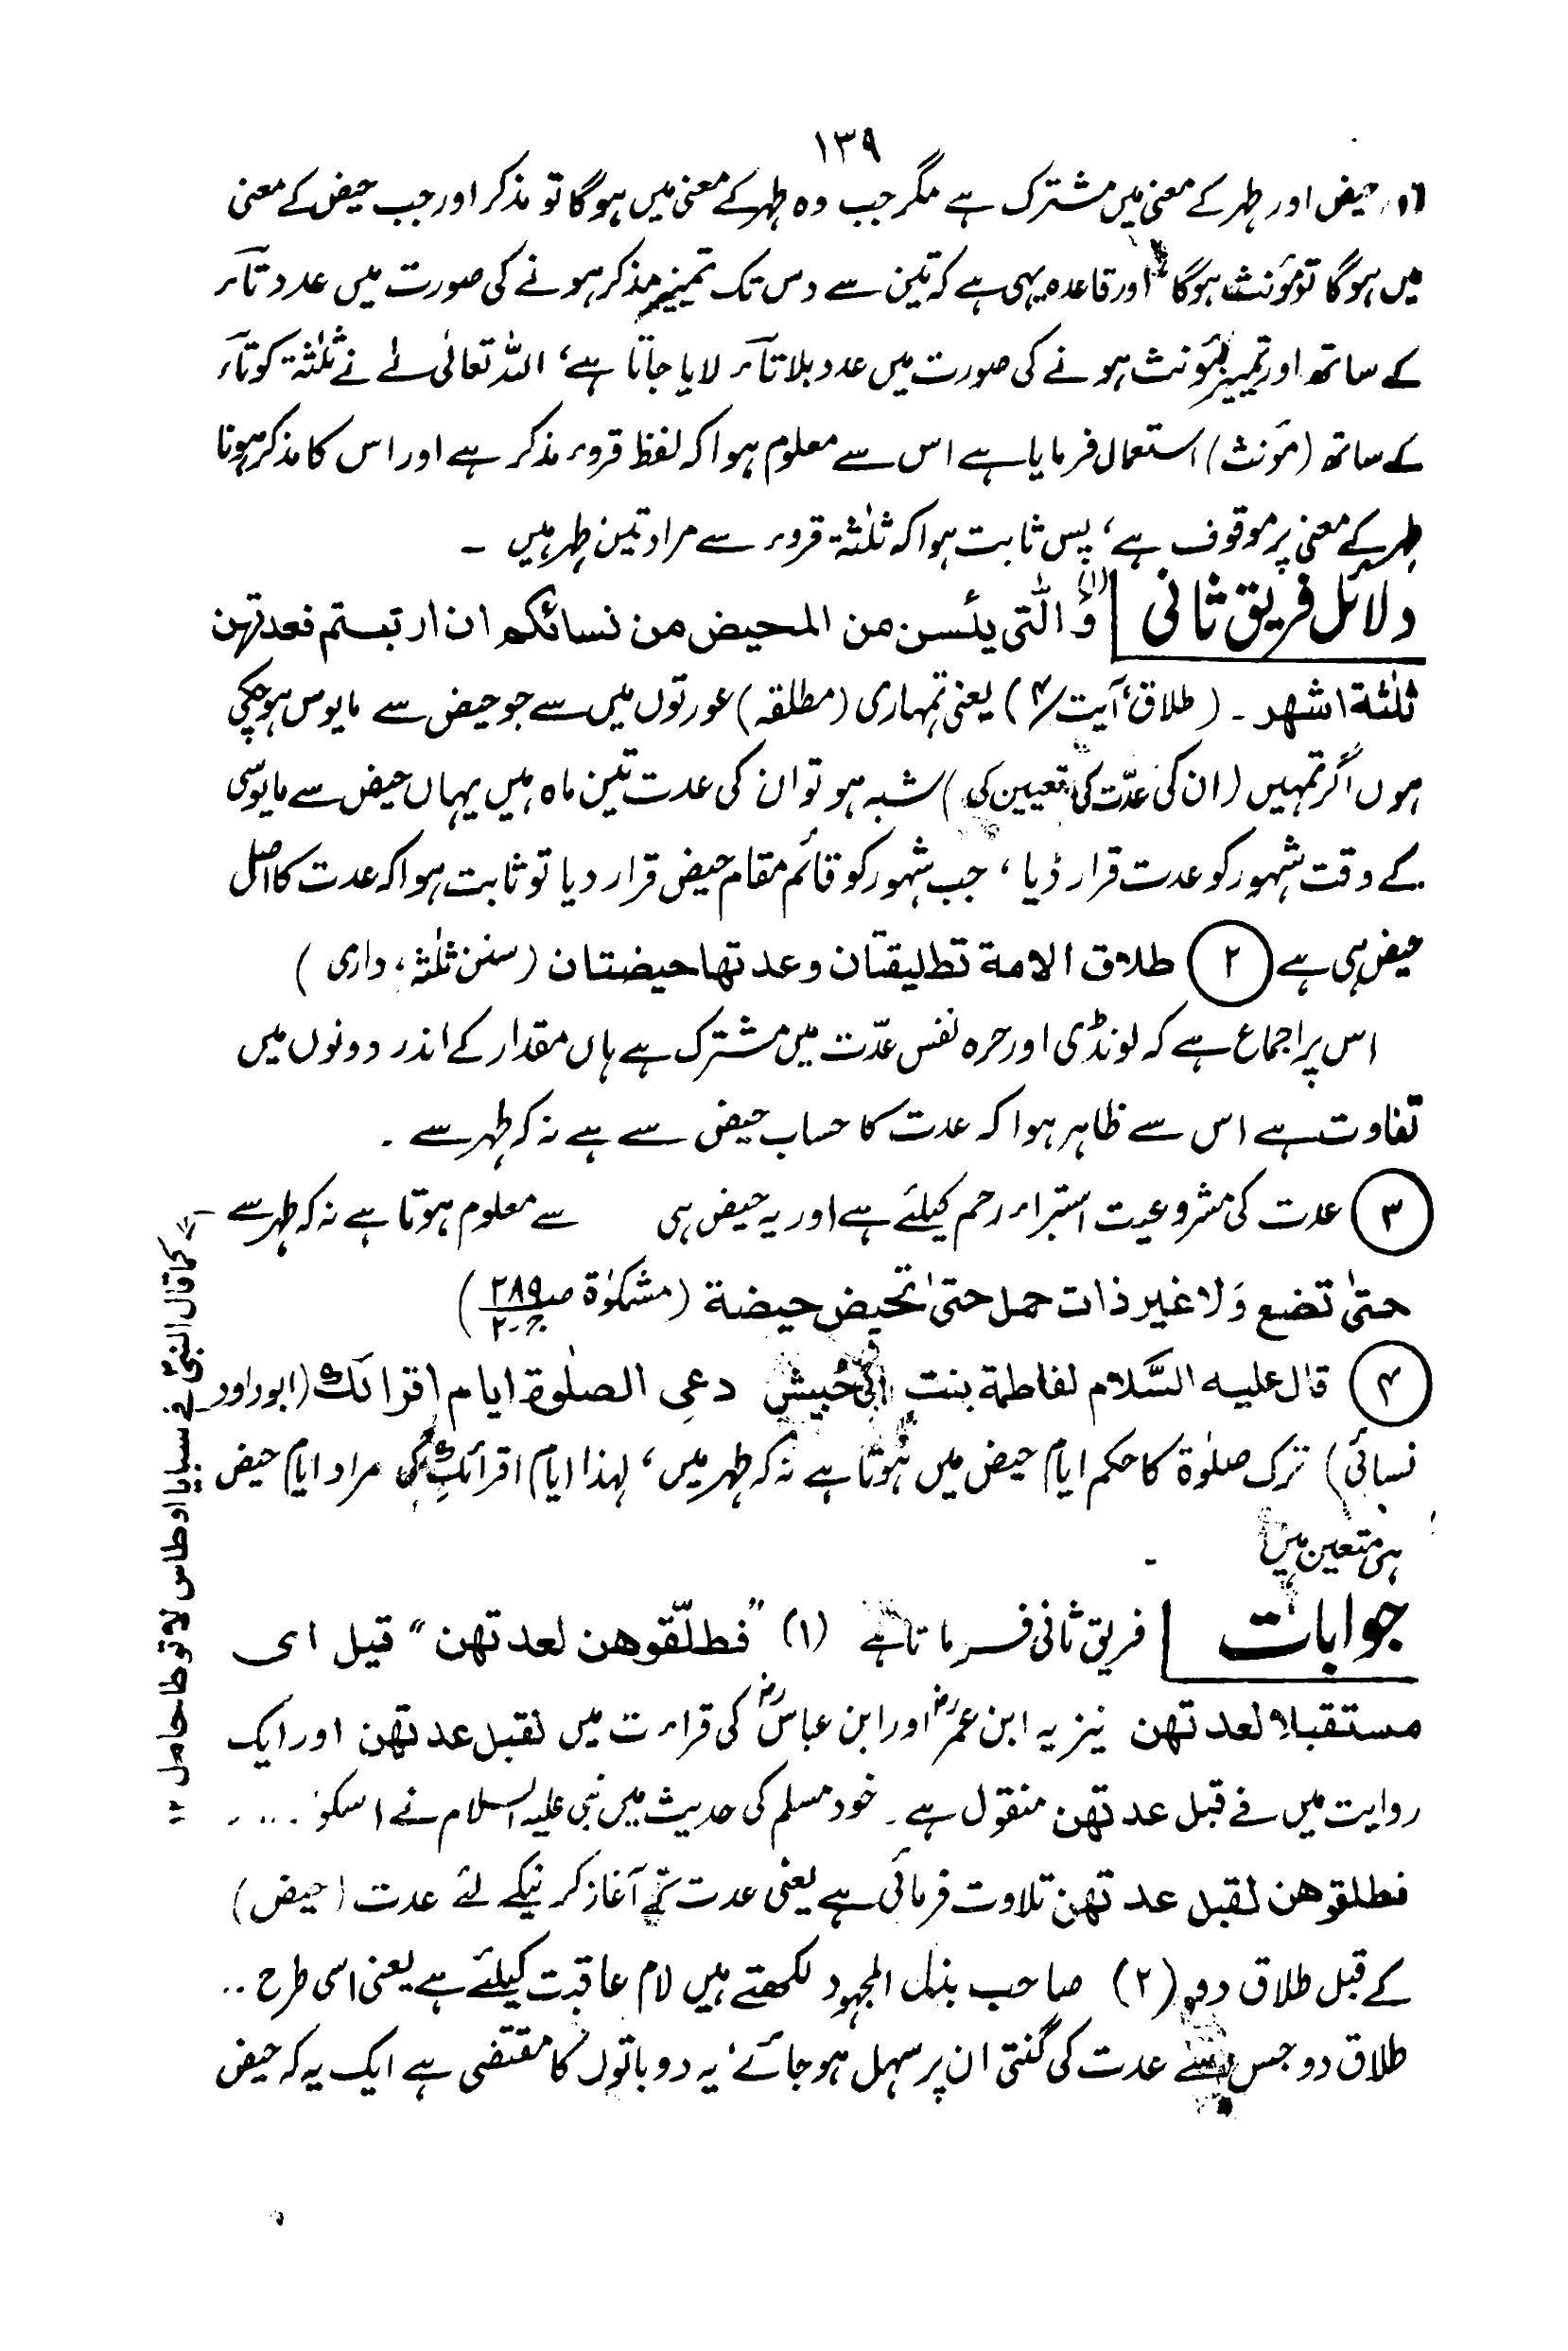 ۱۳۹
حیض اور طہر کے معنی میں مشترک ہے مگر جب وہ طہر کے معنی میں ہوگا تو مذکر اور جب حیض کے معنی
میں ہوگا تو مؤنث ہوگا اور قاعدہ یہی ہے کہ تین سے دس تک تمییز مذکر ہونے کی صورت میں عدد تآء
کے ساتھ اور تمییز مؤنث ہونے کی صورت میں عدد بلا تآء لایا جاتا ہے، اللہ تعالٰی لے نے ثلٰثۃ کو تآء
کے ساتھ (مؤنث) استعمال فرمایا ہے اس سے معلوم ہوا کہ لفظ قروء مذکر ہے اور اس کا مذکر ہونا
طہر کے معنی پر موقوف ہے، پس ثابت ہوا کہ ثلٰثۃ قروء سے مراد تین طہر ہیں ۔
دلائل فریق ثانی (۱) وَ الّٰتی یئسن من المحیض من نسائکم ان ارتبتم فعدتھن
ثلٰثۃ اشھر ۔ (طلاق، آیت /۴) یعنی تمہاری (مطلقہ) عورتوں میں سے جو حیض سے مایوس ہوچکی
ہوں اگر تمہیں (ان کی عدّت کی تعیین کی) شبہ ہو تو ان کی عدت تین ماہ ہیں یہاں حیض سے مایوسی
کے وقت شہور کو عدت قرار دیا، جب شہور کو قائم مقام حیض قرار دیا تو ثابت ہوا کہ عدت کا اصل
حیض ہی ہے (۲) طلاق الامة تطلیقتان وعدتھا حیضتان (سنن ثلٰثہ، دارمی)
اس پر اجماع ہے کہ لونڈی اور حرہ نفس عدّت میں مشترک ہے ہاں مقدار کے اندر دونوں میں
تفاوت ہے اس سے ظاہر ہوا کہ عدت کا حساب حیض سے ہے نہ کہ طہر سے ۔
(۳) عدت کی مشروعیت استبراء رحم کیلئے ہے اور یہ حیض ہی سے معلوم ہوتا ہے نہ کہ طہر سے
کما قال النبیؐ فے سبایا اوطاس لا توطا حامل ۱۲
حتٰی تضع وَلا غیر ذات حمل حتیٰ تحیض حیضة (مشکوٰۃ صـ ۲۸۹ / ج۲)
(۴) قال علیہ السَّلام لفاطمة بنت ابی حُبیش دعی الصلٰوة ایام اقرائک (ابوداود
نسائی) ترک صلوٰۃ کا حکم ایام حیض میں ہوتا ہے نہ کہ طہر میں، لہذا ایام اقرائک کی مراد ایام حیض
ہی متعین ہیں ۔
جوابات فریق ثانی فرماتا ہے (۱) ”فطلّقوھن لعدتھن“ قیل ای
مستقبلا لعدتھن نیز یہ ابن عمرؓ اور ابن عباسؓ کی قراءت میں لقبل عدتھن اور ایک
روایت میں فے قبل عدتھن منقول ہے ۔ خود مسلم کی حدیث میں نبی علیہ السلام نے اسکو ....
فطلقوھن لقبل عدتھن تلاوت فرمائی ہے یعنی عدت کے آغاز کرنیکے لئے عدت (حیض)
کے قبل طلاق دو، (۲) صاحب بذل المجہود لکھتے ہیں لام عاقبت کیلئے ہے یعنی اسی طرح ..
طلاق دو جس سے عدت کی گنتی ان پر سہل ہوجائے، یہ دو باتوں کا مقتضی ہے ایک یہ کہ حیض